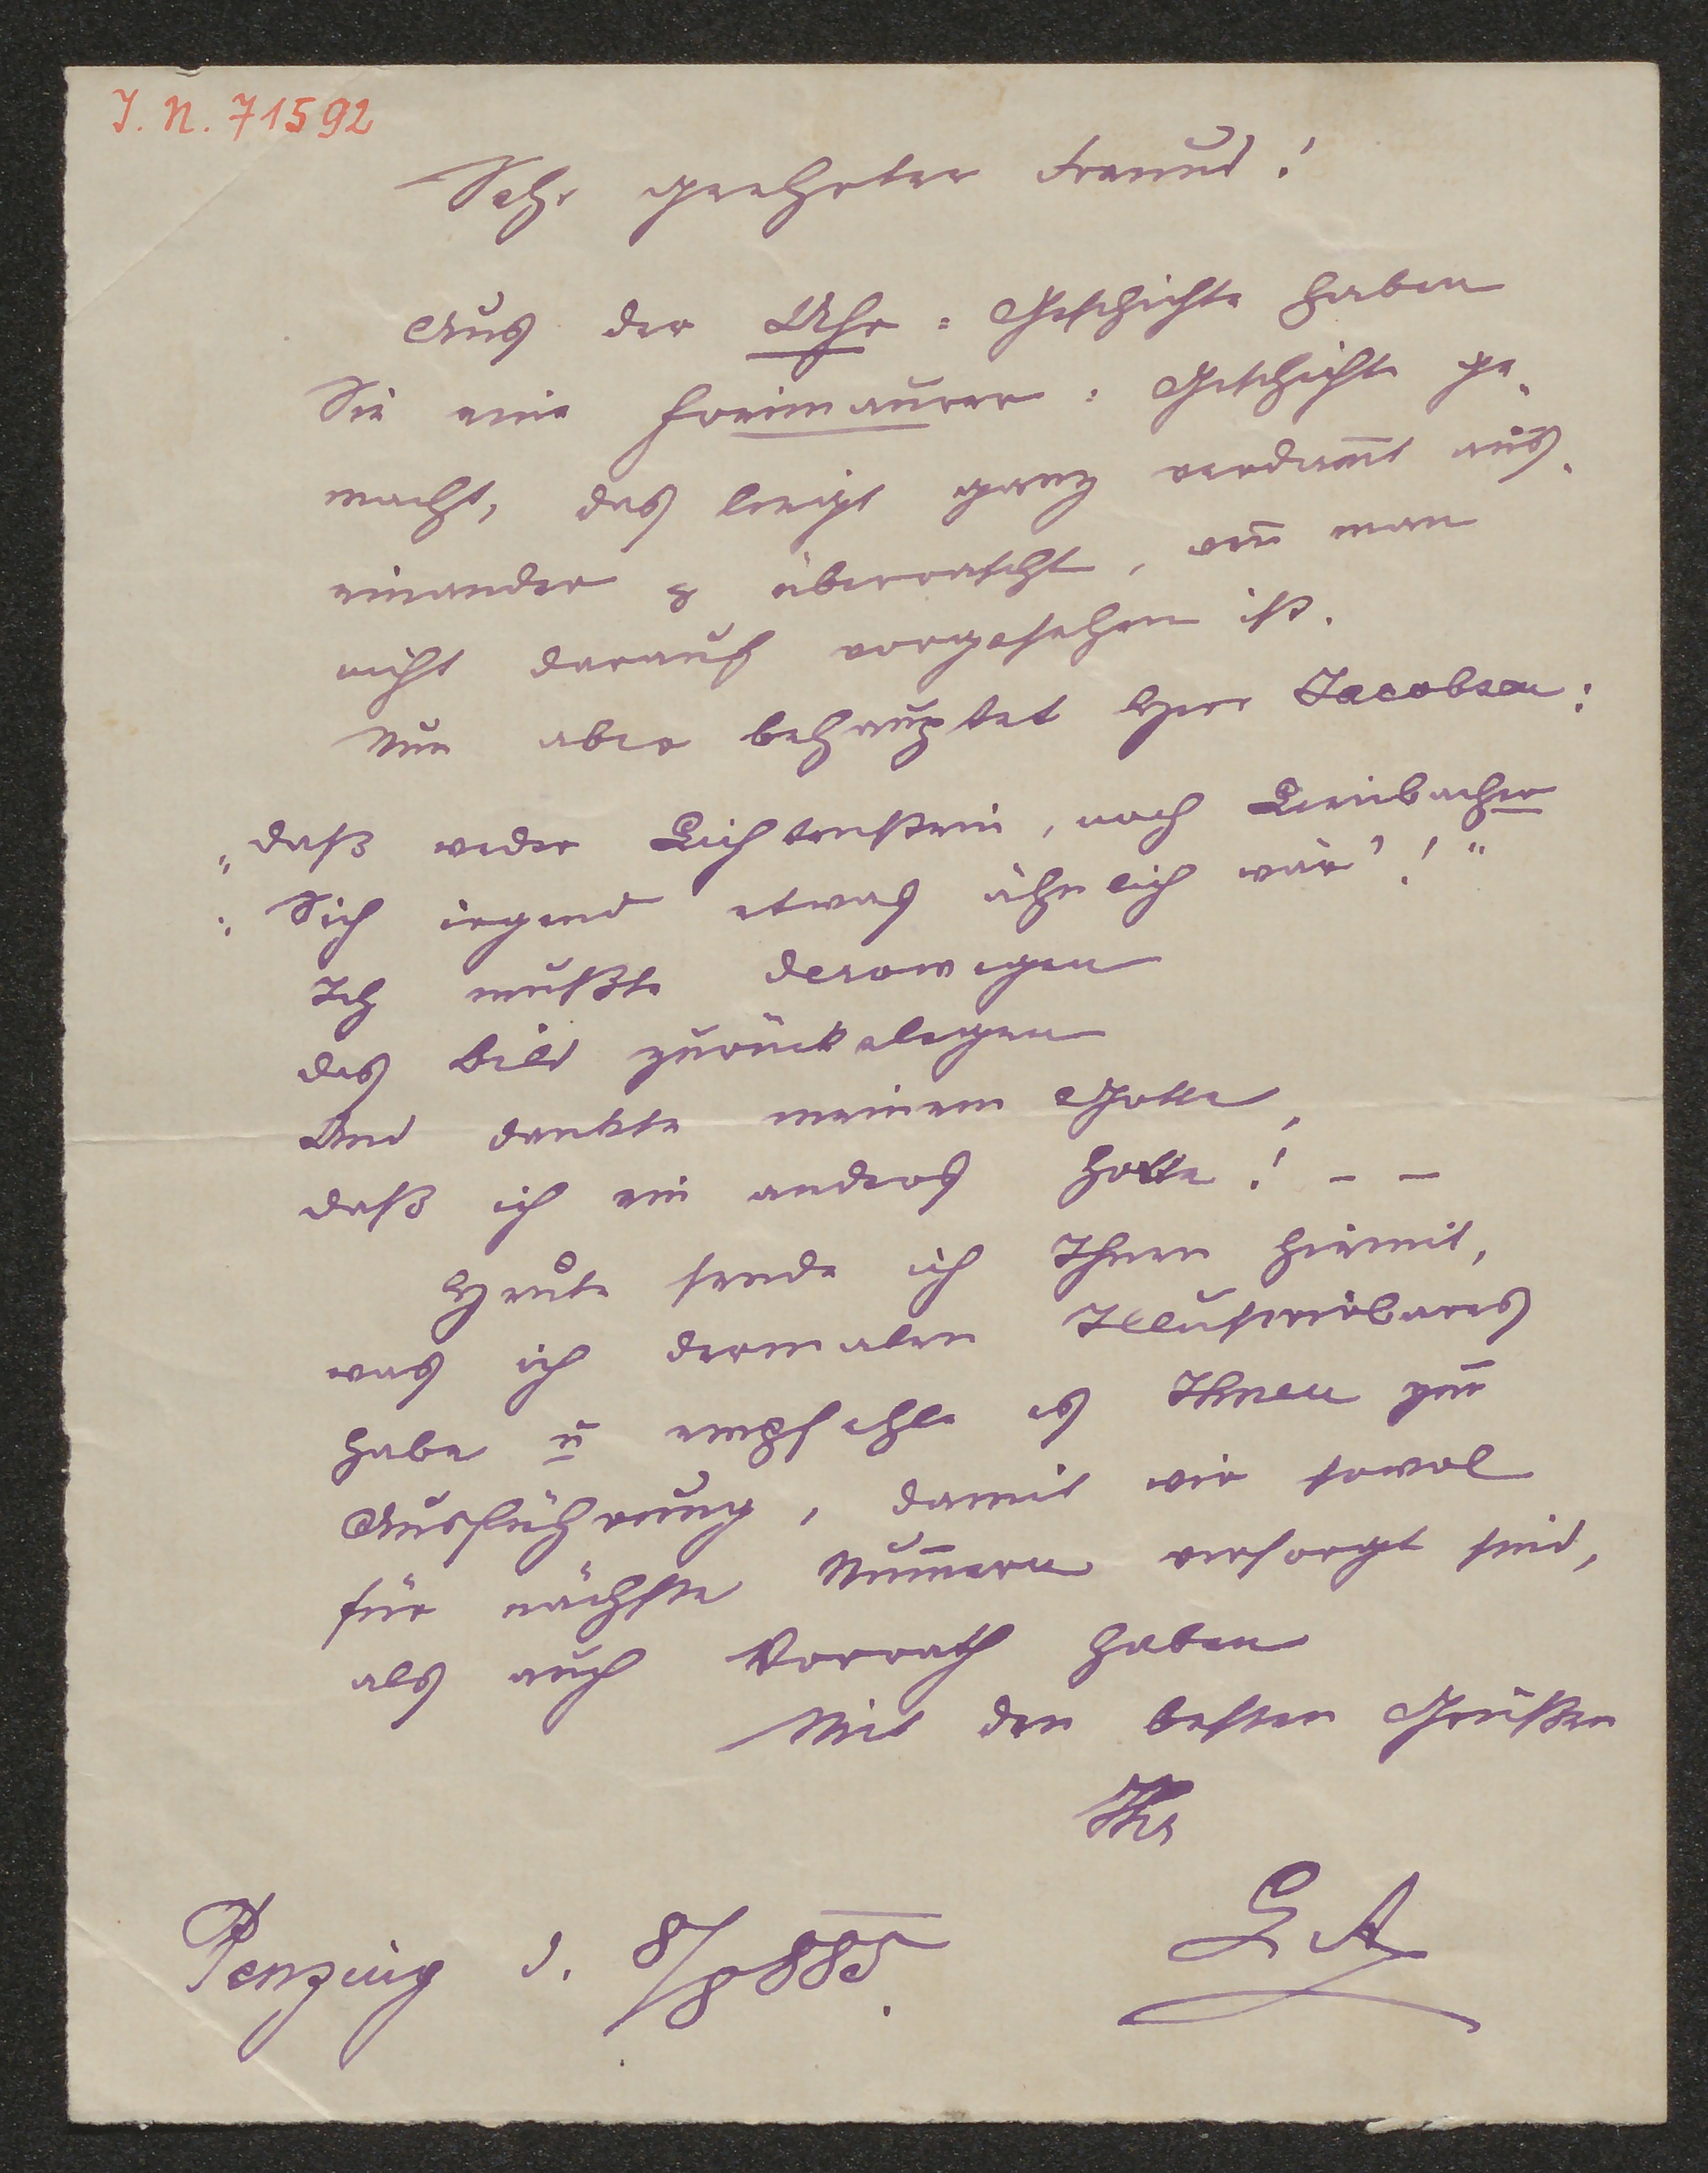 J. N. 71592
Sehr geehrter Freund!
Aus der Uhr=Geschichte haben
Sie eine Freimaurer=Geschichte ge-
macht, das liegt ganz verdam̅t aus-
einander & überrascht, wen̅ man
nicht darauf vorgesehen ist.
Nun aber behauptet Herr Jacobsen:
„daß weder Lichtenstein, noch Lienbacher
: Sich irgend etwas ähnlich wär'!“
Ich mußte derowegen
das Bild zurückelegen
Und dankte meinem Gotte,
daß ich ein anders hotte! – –
Heute sende ich Ihnen hiemit,
was ich dermalen Illustrirbares
habe u̅ empfehle es Ihnen zur
Ausführung, damit wir sowol
für nächste Num̅ern versorgt sind,
als auch Vorrath haben
Mit den besten Grüßen
Ihr
LA
Penzing d. 8/8 885.